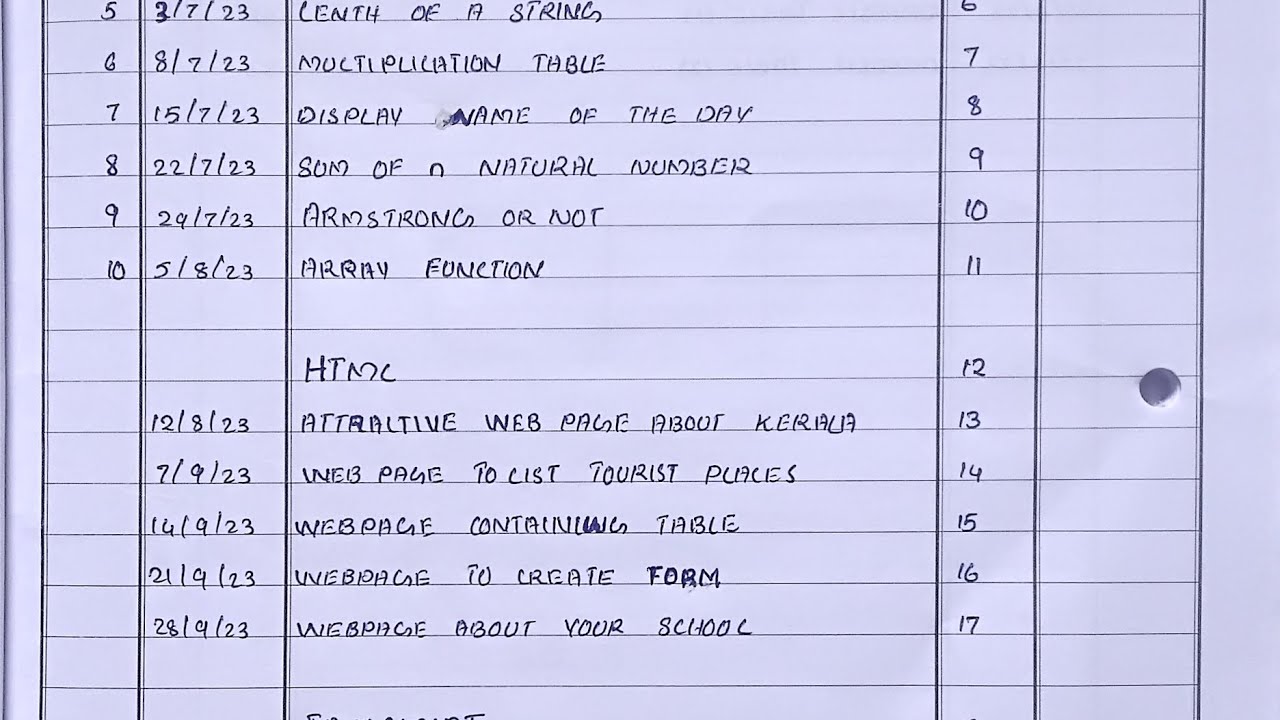 5 3/7/23 LENTH OF A STRING 6
6 8/7/23 MULTIPLICATION TABLE 7
7 15/7/23 DISPLAY NAME OF THE DAY 8
8 22/7/23 SUM OF n NATURAL NUMBER 9
9 29/7/23 ARMSTRONG OR NOT 10
10 5/8/23 ARRAY FUNCTION 11
HTML 12
12/8/23 ATTRALTIVE WEB PAGE ABOUT KERALA 13
7/9/23 WEB PAGE TO LIST TOURIST PLACES 14
14/9/23 WEBPAGE CONTAINING TABLE 15
21/9/23 WEBPAGE TO CREATE FORM 16
28/9/23 WEBPAGE ABOUT YOUR SCHOOL 17